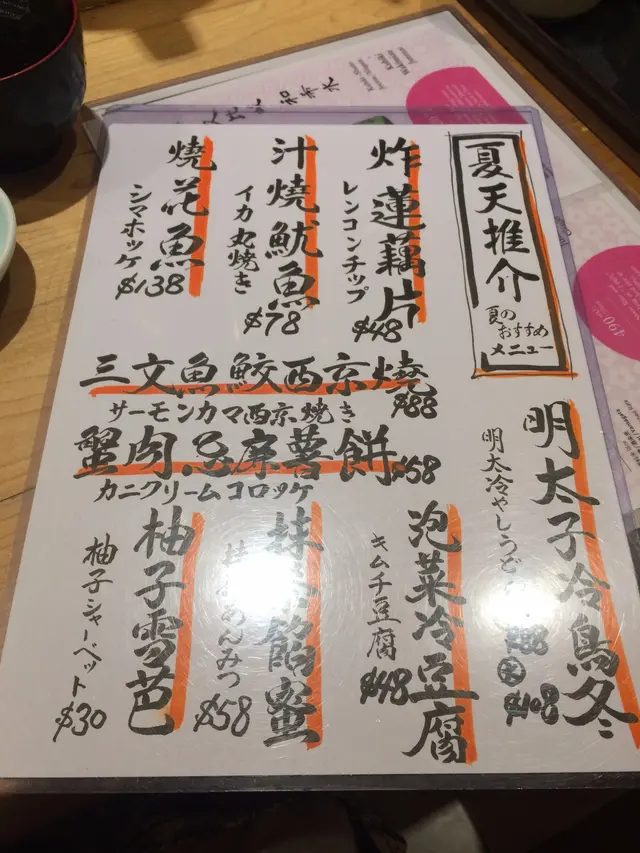 夏天推介
夏の
おすすめ
メニュー
炸蓮藕片
レンコンチップ
$48
汁燒魷魚
イカ丸焼き
$78
燒花魚
シマホッケ
$138
三文魚鮫西京燒
サーモンカマ西京焼き
$88
蟹肉忌廉薯餅
カニクリームコロッケ
$58
明太子冷烏冬
明太冷やしうどん
$88
大
$108
泡菜冷豆腐
キムチ豆腐
$48
抹茶餡蜜
抹茶あんみつ
$58
柚子雪芭
柚子シャーベット
$30